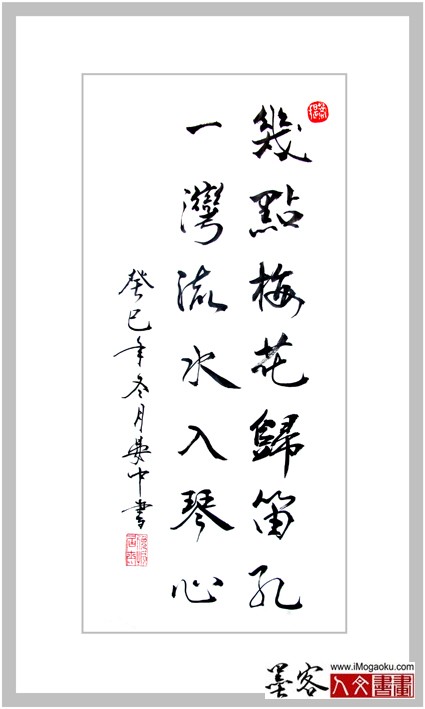 幾點梅花歸笛孔
一灣流水入琴心
癸巳年冬月晏中書
墨客
www.iMogaoku.com
人文書畫